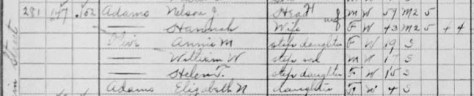 231 147 152 Adams Nelson Head M W 59 M2 5
—— Hannah Wife F W 43 M2 5 4 4
Annie M step daughter F W 19 S
—— William W step son M W 17 S
—— Helen F. step daughter F W 15 S
Adams Elizabeth N daughter F W 4 S